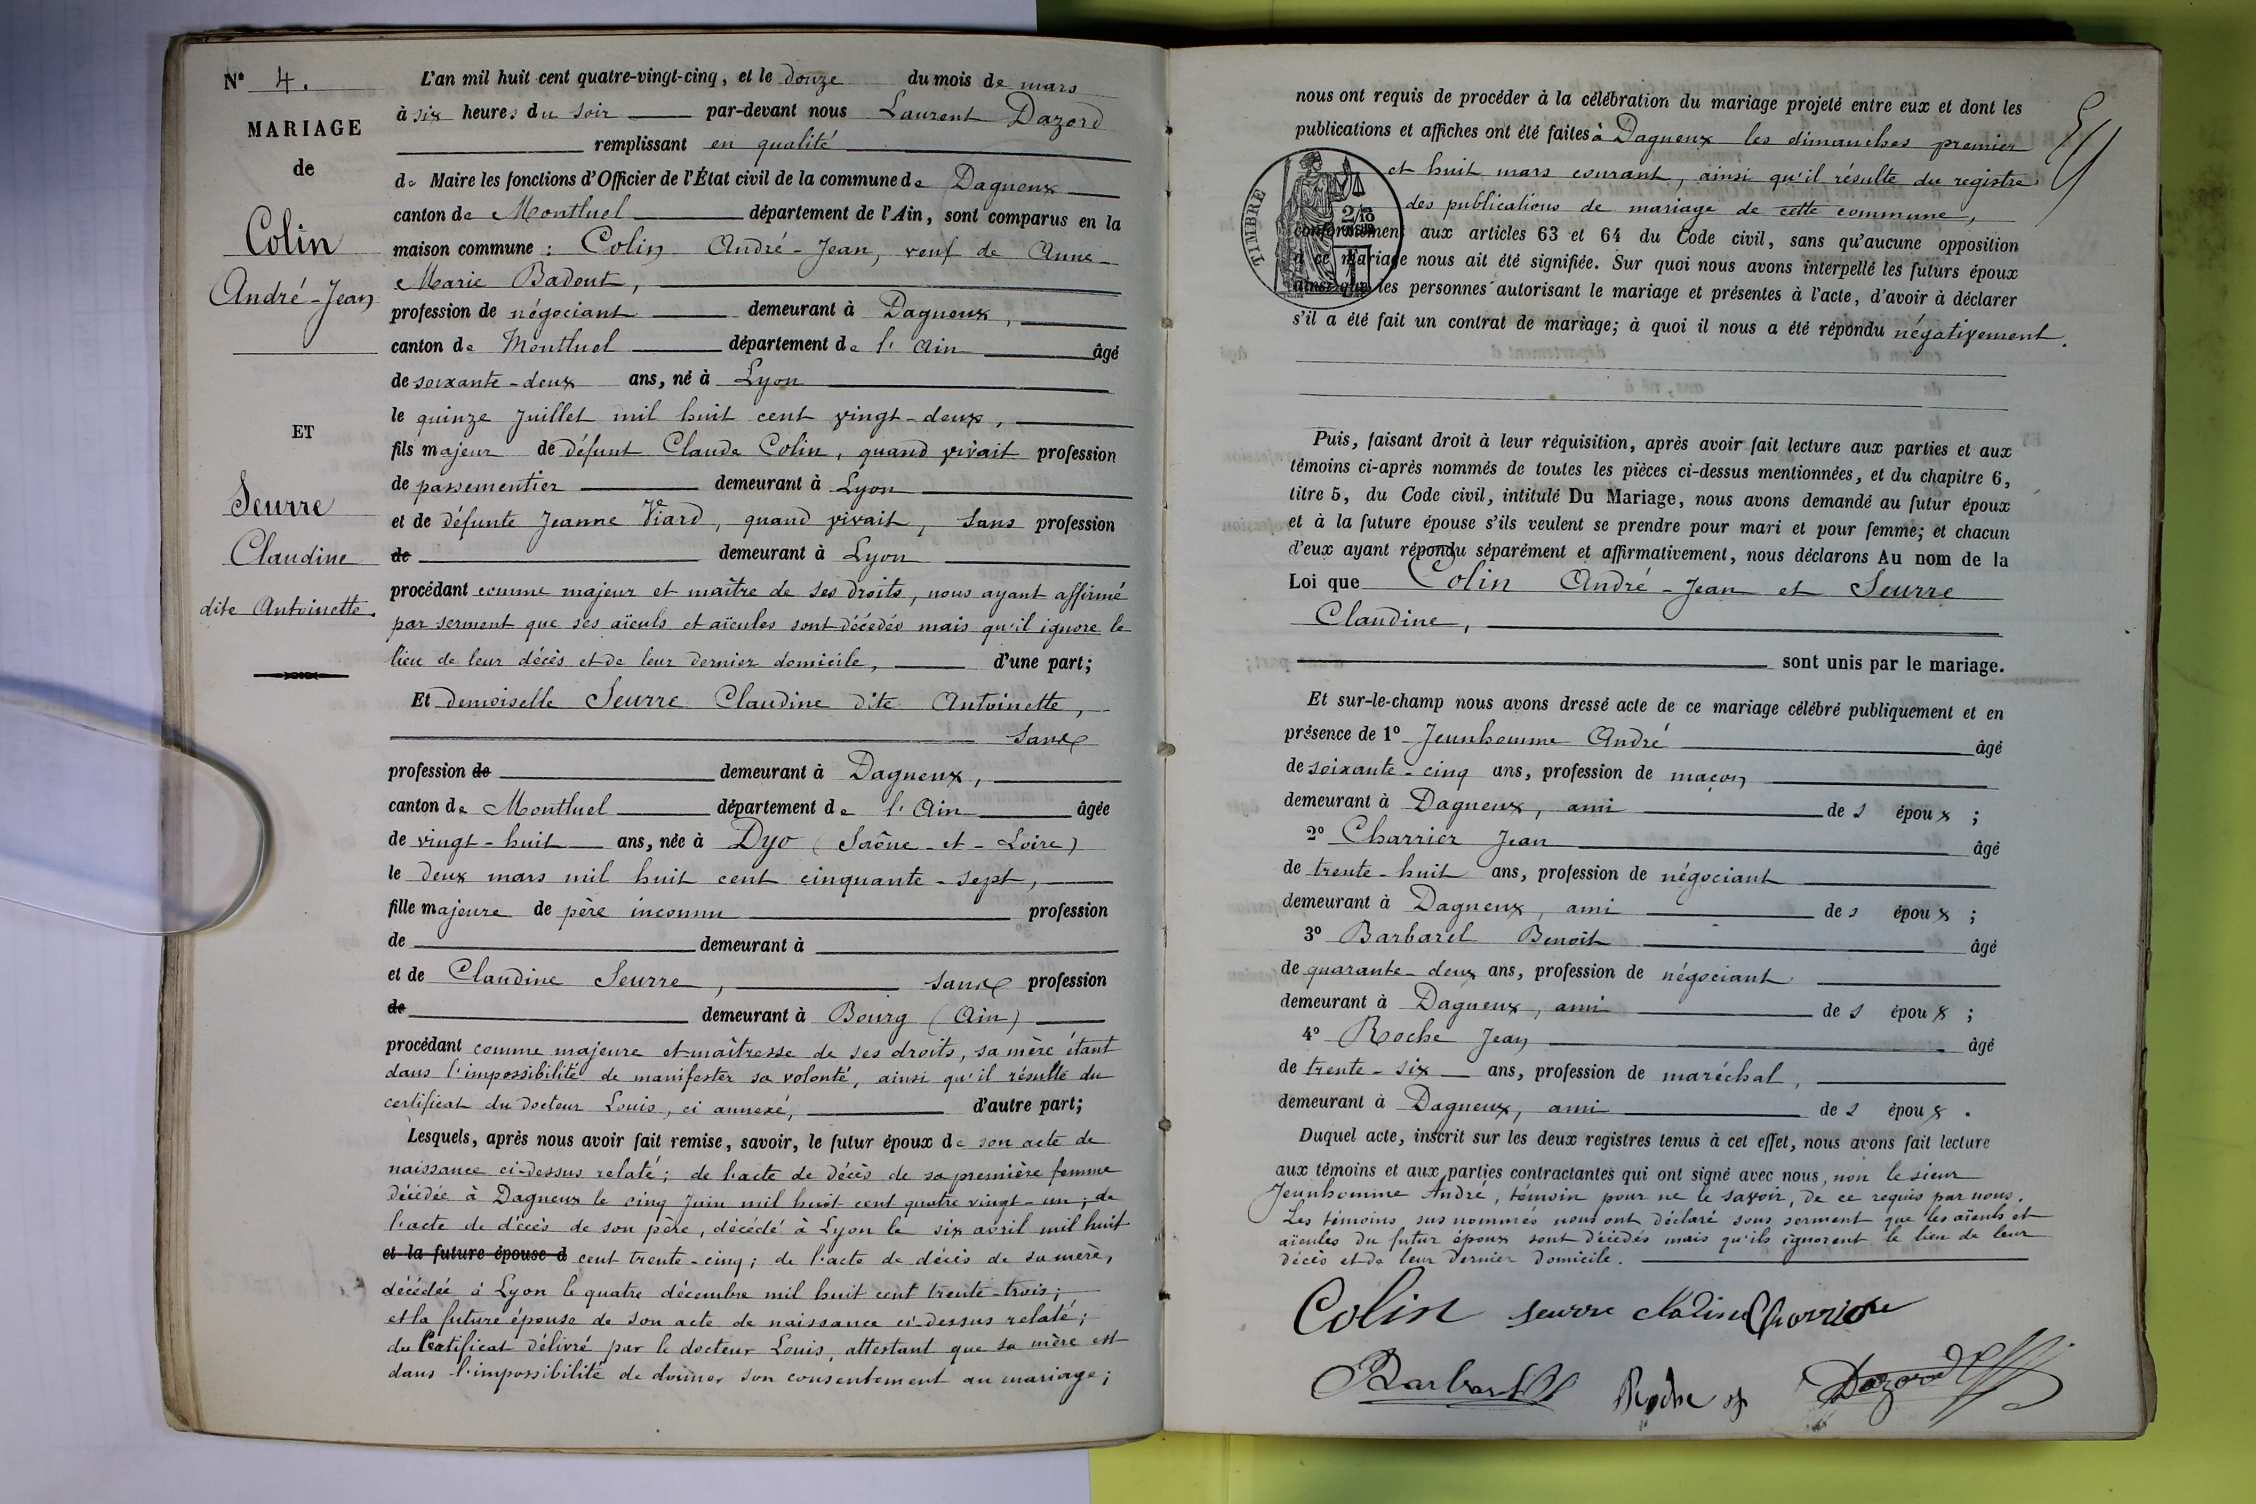 N° 4.
MARIAGE
de
Colin
André-Jean
ET
Seurre
Claudine
dite Antoinette.
L'an mil huit cent quatre-vingt-cinq, et le douze du mois de mars
à six heures du soir par-devant nous Laurent Dazord
remplissant en qualité
de Maire les fonctions d'Officier de l'État civil de la commune de Dagneux
canton de Montluel département de l'Ain, sont comparus en la
maison commune : Colin André-Jean, veuf de Anne-
Marie Badout,
profession de négociant demeurant à Dagneux,
canton de Montluel département de l'Ain âgé
de soixante-deux ans, né à Lyon
le quinze Juillet mil huit cent vingt-deux,
fils majeur de défunt Claude Colin, quand vivait profession
de passementier demeurant à Lyon
et de défunte Jeanne Viard, quand vivait, sans profession
de demeurant à Lyon
procédant comme majeur et maître de ses droits, nous ayant affirmé
par serment que ses aïeuls et aïeules sont décédés mais qu'il ignore le
lieu de leur décès et de leur dernier domicile, d'une part;
Et demoiselle Seurre Claudine dite Antoinette,
sans
profession de demeurant à Dagneux,
canton de Montluel département de l'Ain âgée
de vingt-huit ans, née à Dyo (Saône-et-Loire)
le deux mars mil huit cent cinquante-sept,
fille majeure de père inconnu profession
de demeurant à
et de Claudine Seurre, sans profession
de demeurant à Bourg (Ain)
procédant comme majeure et maîtresse de ses droits, sa mère étant
dans l'impossibilité de manifester sa volonté, ainsi qu'il résulte du
certificat du docteur Louis, ci annexé, d'autre part;
Lesquels, après nous avoir fait remise, savoir, le futur époux de son acte de
naissance ci-dessus relaté; de l'acte de décès de sa première femme
décédée à Dagneux le cinq Juin mil huit cent quatre vingt-un; de
l'acte de décès de son père, décédé à Lyon le six avril mil huit
et la future épouse d cent trente-cinq; de l'acte de décès de sa mère,
décédée à Lyon le quatre décembre mil huit cent trente-trois;
et la future épouse de son acte de naissance ci-dessus relaté;
du Certificat délivré par le docteur Louis, attestant que sa mère est
dans l'impossibilité de donner son consentement au mariage;
nous ont requis de procéder à la célébration du mariage projeté entre eux et dont les
publications et affiches ont été faites à Dagneux les dimanches premier
et huit mars courant, ainsi qu'il résulte du registre
des publications de mariage de cette commune,
TIMBRE
2/10
conformément aux articles 63 et 64 du Code civil, sans qu'aucune opposition
à ce mariage nous ait été signifiée. Sur quoi nous avons interpellé les futurs époux
ainsi que les personnes autorisant le mariage et présentes à l'acte, d'avoir à déclarer
s'il a été fait un contrat de mariage; à quoi il nous a été répondu négativement.
Puis, faisant droit à leur réquisition, après avoir fait lecture aux parties et aux
témoins ci-après nommés de toutes les pièces ci-dessus mentionnées, et du chapitre 6,
titre 5, du Code civil, intitulé Du Mariage, nous avons demandé au futur époux
et à la future épouse s'ils veulent se prendre pour mari et pour femme; et chacun
d'eux ayant répondu séparément et affirmativement, nous déclarons Au nom de la
Loi que Colin André-Jean et Seurre
Claudine,
sont unis par le mariage.
Et sur-le-champ nous avons dressé acte de ce mariage célébré publiquement et en
présence de 1° Jeunhomme André âgé
de soixante-cinq ans, profession de maçon
demeurant à Dagneux, ami des époux;
2° Charrier Jean âgé
de trente-huit ans, profession de négociant
demeurant à Dagneux, ami des époux;
3° Barbarel Benoît âgé
de quarante-deux ans, profession de négociant
demeurant à Dagneux, ami des époux;
4° Roche Jean âgé
de trente-six ans, profession de maréchal,
demeurant à Dagneux, ami des époux.
Duquel acte, inscrit sur les deux registres tenus à cet effet, nous avons fait lecture
aux témoins et aux parties contractantes qui ont signé avec nous, non le sieur
Jeunhomme André, témoin pour ne le savoir, de ce requis par nous.
Les témoins sus nommés nous ont déclaré sous serment que les aïeuls et
aïeules du futur époux sont décédés mais qu'ils ignorent le lieu de leur
décès et de leur dernier domicile.
Colin seurre cladine Charrier
Barbarel Roche Dazord